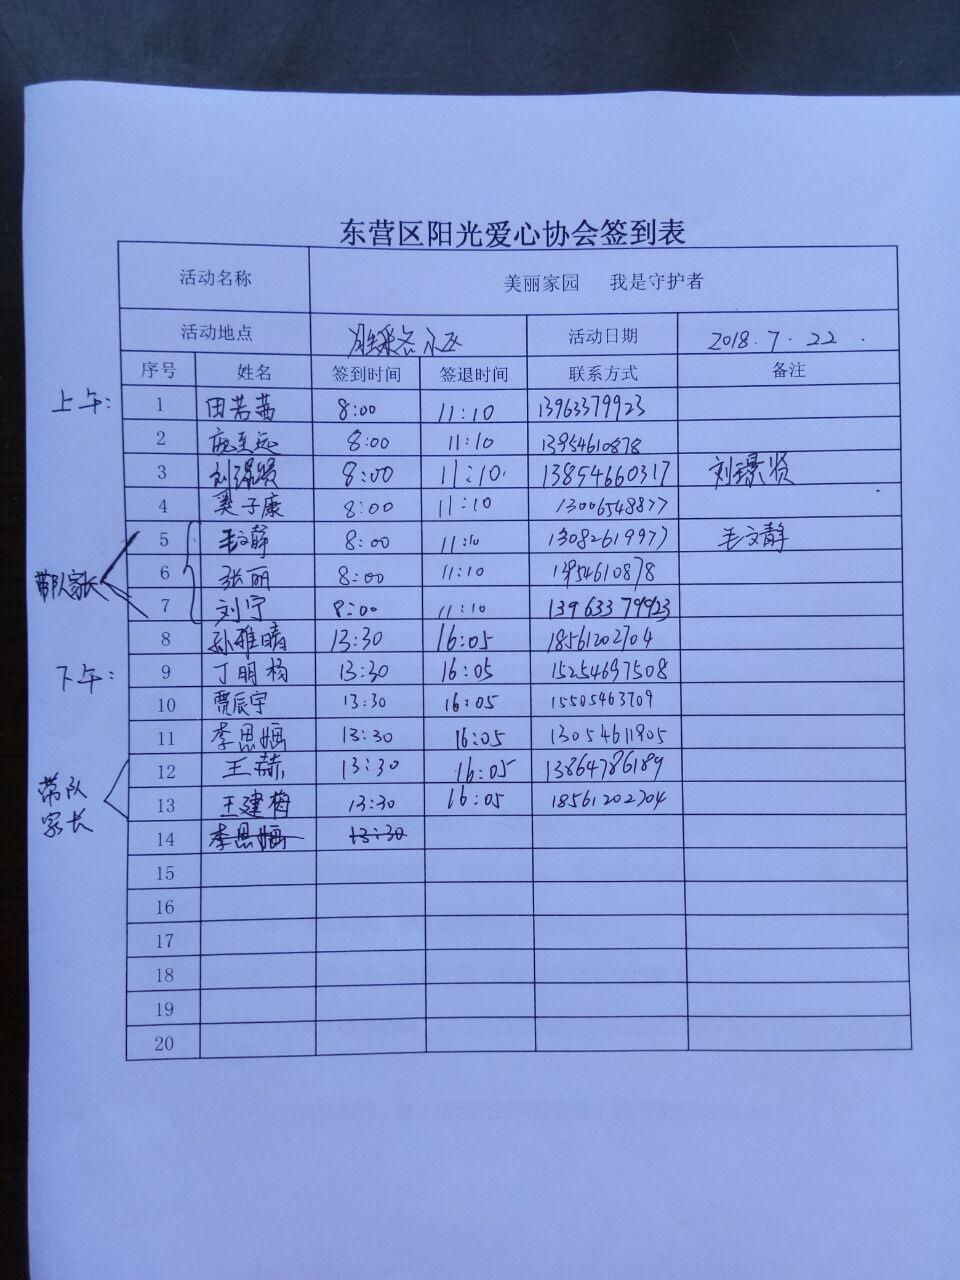 东营区阳光爱心协会签到表
活动名称 美丽家园 我是守护者
活动地点 胜采 小区 活动日期 2018.7.22.
序号 姓名 签到时间 签退时间 联系方式 备注
上午: 1 田若茜 8:00 11:10 13963379923
2 至远 8:00 11:10 13954610878
3 刘璟贤 8:00 11:10. 13854660317 刘璟贤
4 奚子康 8:00 11:10 13006548877
5 毛文静 8:00 11:10 13082619977 毛文静
带队家长 6 张丽 8:00 11:10 13954610878
7 刘宁 8:00 11:10 13963379923
8 孙雅晴 13:30 16:05 18561202704
下午: 9 丁明杨 13:30 16:05 15254697508
10 贾辰宇 13:30 16:05 15505463709
11 李思 13:30 16:05 13054611905
12 王赫 13:30 16:05 13864786189
带队家长 13 王建梅 13:30 16:05 18561202704
14 李思 13:30
15
16
17
18
19
20